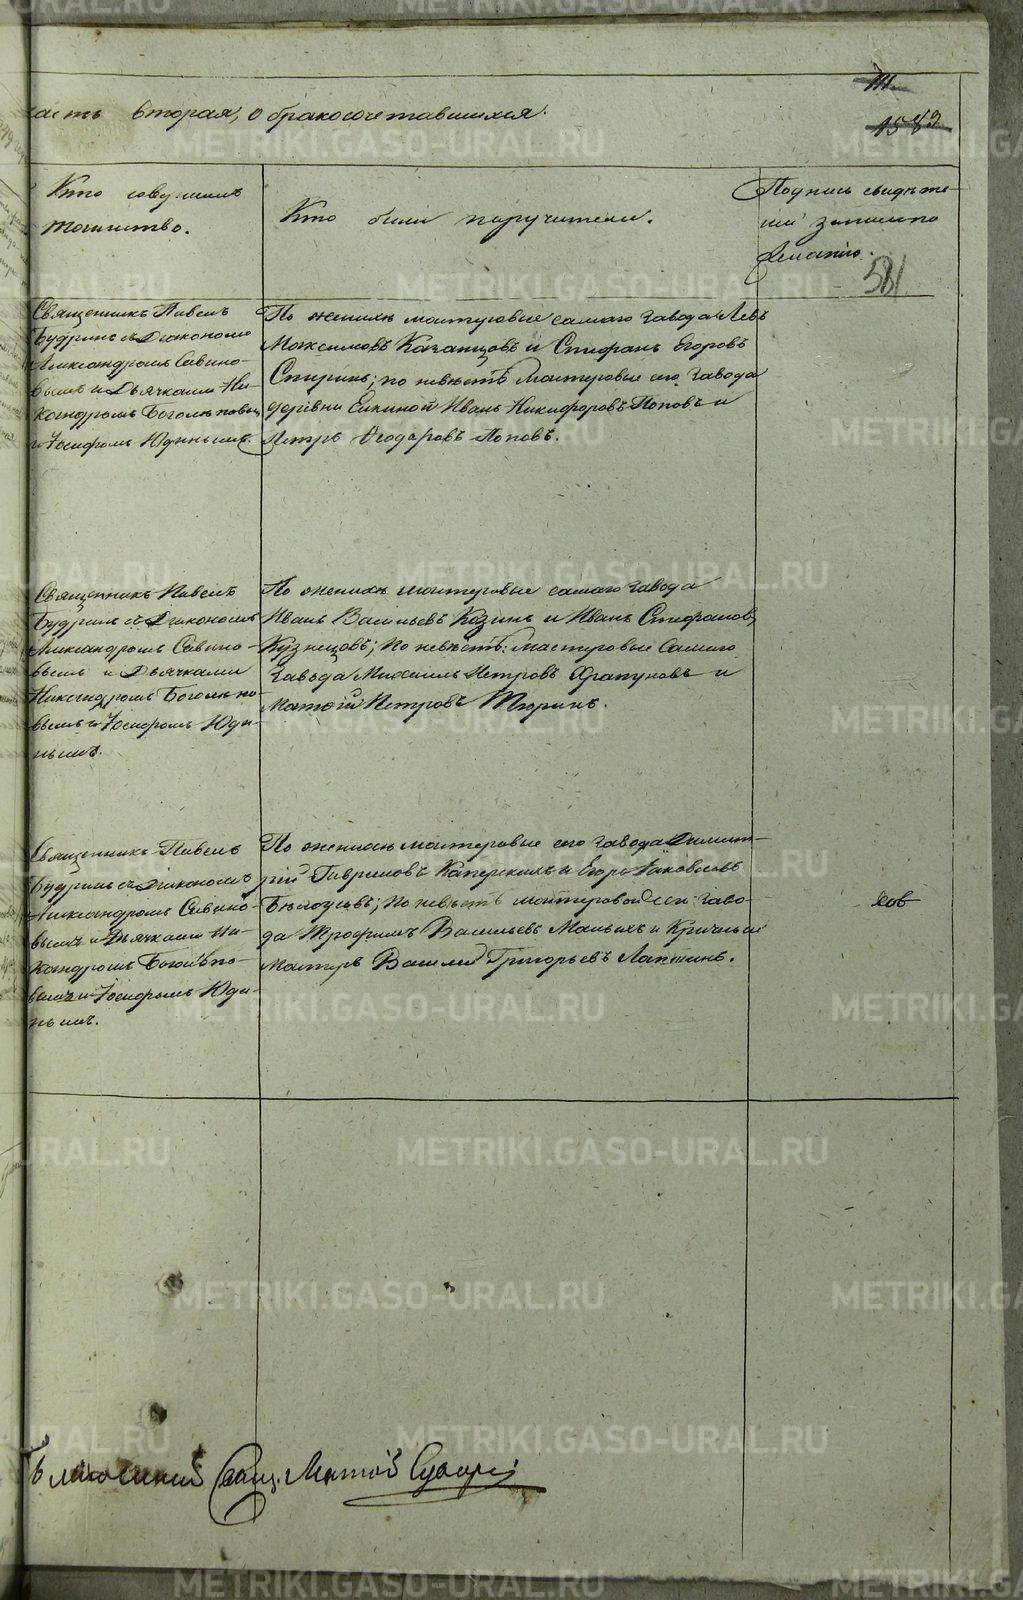 часть вторая, о бракосочетавшихся.
1589
Кто совершалъ
таинство.
Кто были поручители.
Подпись свидѣте-
лей записи по
желанію.
581
Священникъ Павелъ
Будринъ съ Діакономъ
Александромъ Савино-
вымъ и Дьячками Ни-
кандромъ Боголѣповым
и Іосифомъ Юдинымъ.
По женихѣ мастеровые самаго завода Левъ
Максимовъ Казанцовъ и Стефанъ Егоровъ
Спиринъ; по невѣстѣ Мастеровые сего завода
деревни Елкиной Иванъ Никифоровъ Поповъ и
Петръ Ѳеодоровъ Поповъ.
Священникъ Павелъ
Будринъ съ Діакономъ
Александромъ Савино-
вымъ и Дьячками
Никандромъ Боголѣпо-
вымъ и Іосифомъ Юди-
нымъ.
По женихѣ мастеровые самаго завода
Иванъ Васильевъ Козинъ и Иванъ Стефановъ
Кузнецовъ; по невѣстѣ: мастеровые самаго
завода Михаилъ Петровъ Храпуновъ и
Матѳій Петровъ Тюринъ.
Священникъ Павелъ
Будринъ съ Діакономъ
Александромъ Савино-
вымъ и Дьячками Ни-
кандромъ Боголѣпо-
вымъ и Іосифомъ Юди-
нымъ.
По женихѣ мастеровые сего завода Димит-
рій Гавриловъ и Егоръ Яковлевъ
Бѣлоусовъ; по невѣстѣ мастеровой сего заво-
да Трофимъ Васильевъ Малыхъ и Кричный
Мастеръ Василій Григорьевъ Лапшинъ.
ков
Свящ. Матѳій
METRIKI.GASO-URAL.RU